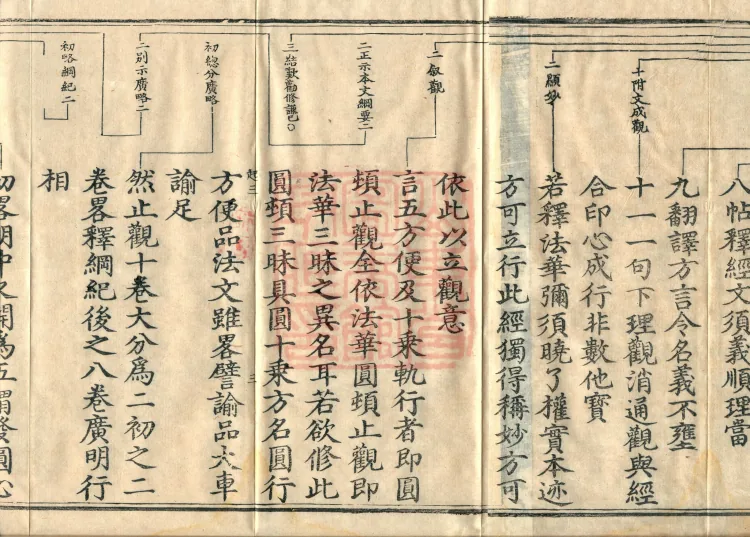 八帖釋經文須義順理當
九翻譯方言令名義不壅
十附文成觀
十一一句下理觀消通觀與經
合印心成行非數他寶
二顯妙
若釋法華彌須曉了權實本迹
方可立行此經獨得稱妙方可
依此以立觀意
二叙觀
言五方便及十乗軌行者即圓
頓止觀全依法華圓頓止觀即
二正示本文綱要二
法華三昧之異名耳若欲修此
三結歎勸修謙巳〇
圓頓三昧具圓十乗方名圓行
起三
三
初總分廣略
方便品法文雖畧譬諭品大車
諭足
二別示廣略二
然止觀十卷大分爲二初之二
卷畧釋綱紀後之八卷廣明行
初略綱紀二
相
開爲五謂發圓心